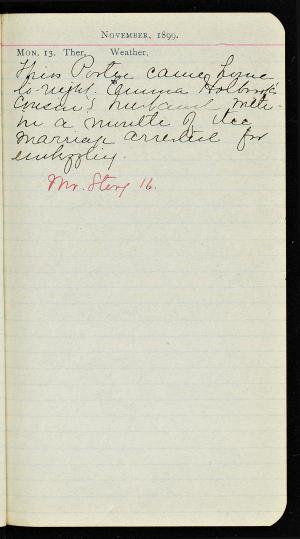 November, 1899.
Mon. 13. Ther. Weather.
Miss Porter came home
to-night. Emma Holbrook's
Cousin's husband with-
in a month of
marriage arrested for
embezzling.
Mr. Story 16.